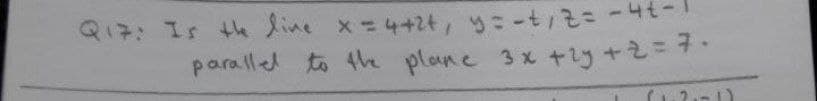 Q17: Is the line x = 4+2t, y = -t, z = -4t-1
parallel to the plane 3x + 2y + z = 7.